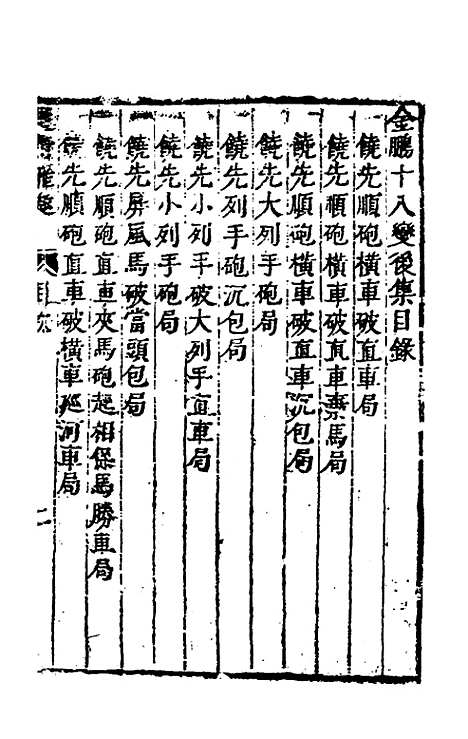 金鵬十八變後集目錄
饒先順砲橫車破直車局
饒先順砲橫車破直車棄馬局
饒先順砲橫車破直車沉包局
饒先大列手砲局
饒先列手砲沉包局
饒先小列手破大列手直車局
饒先小列手砲局
饒先屏風馬破當頭包局
饒先順砲直車夾馬砲起相保馬勝車局
饒先順砲直車破橫車廵河車局
目錄